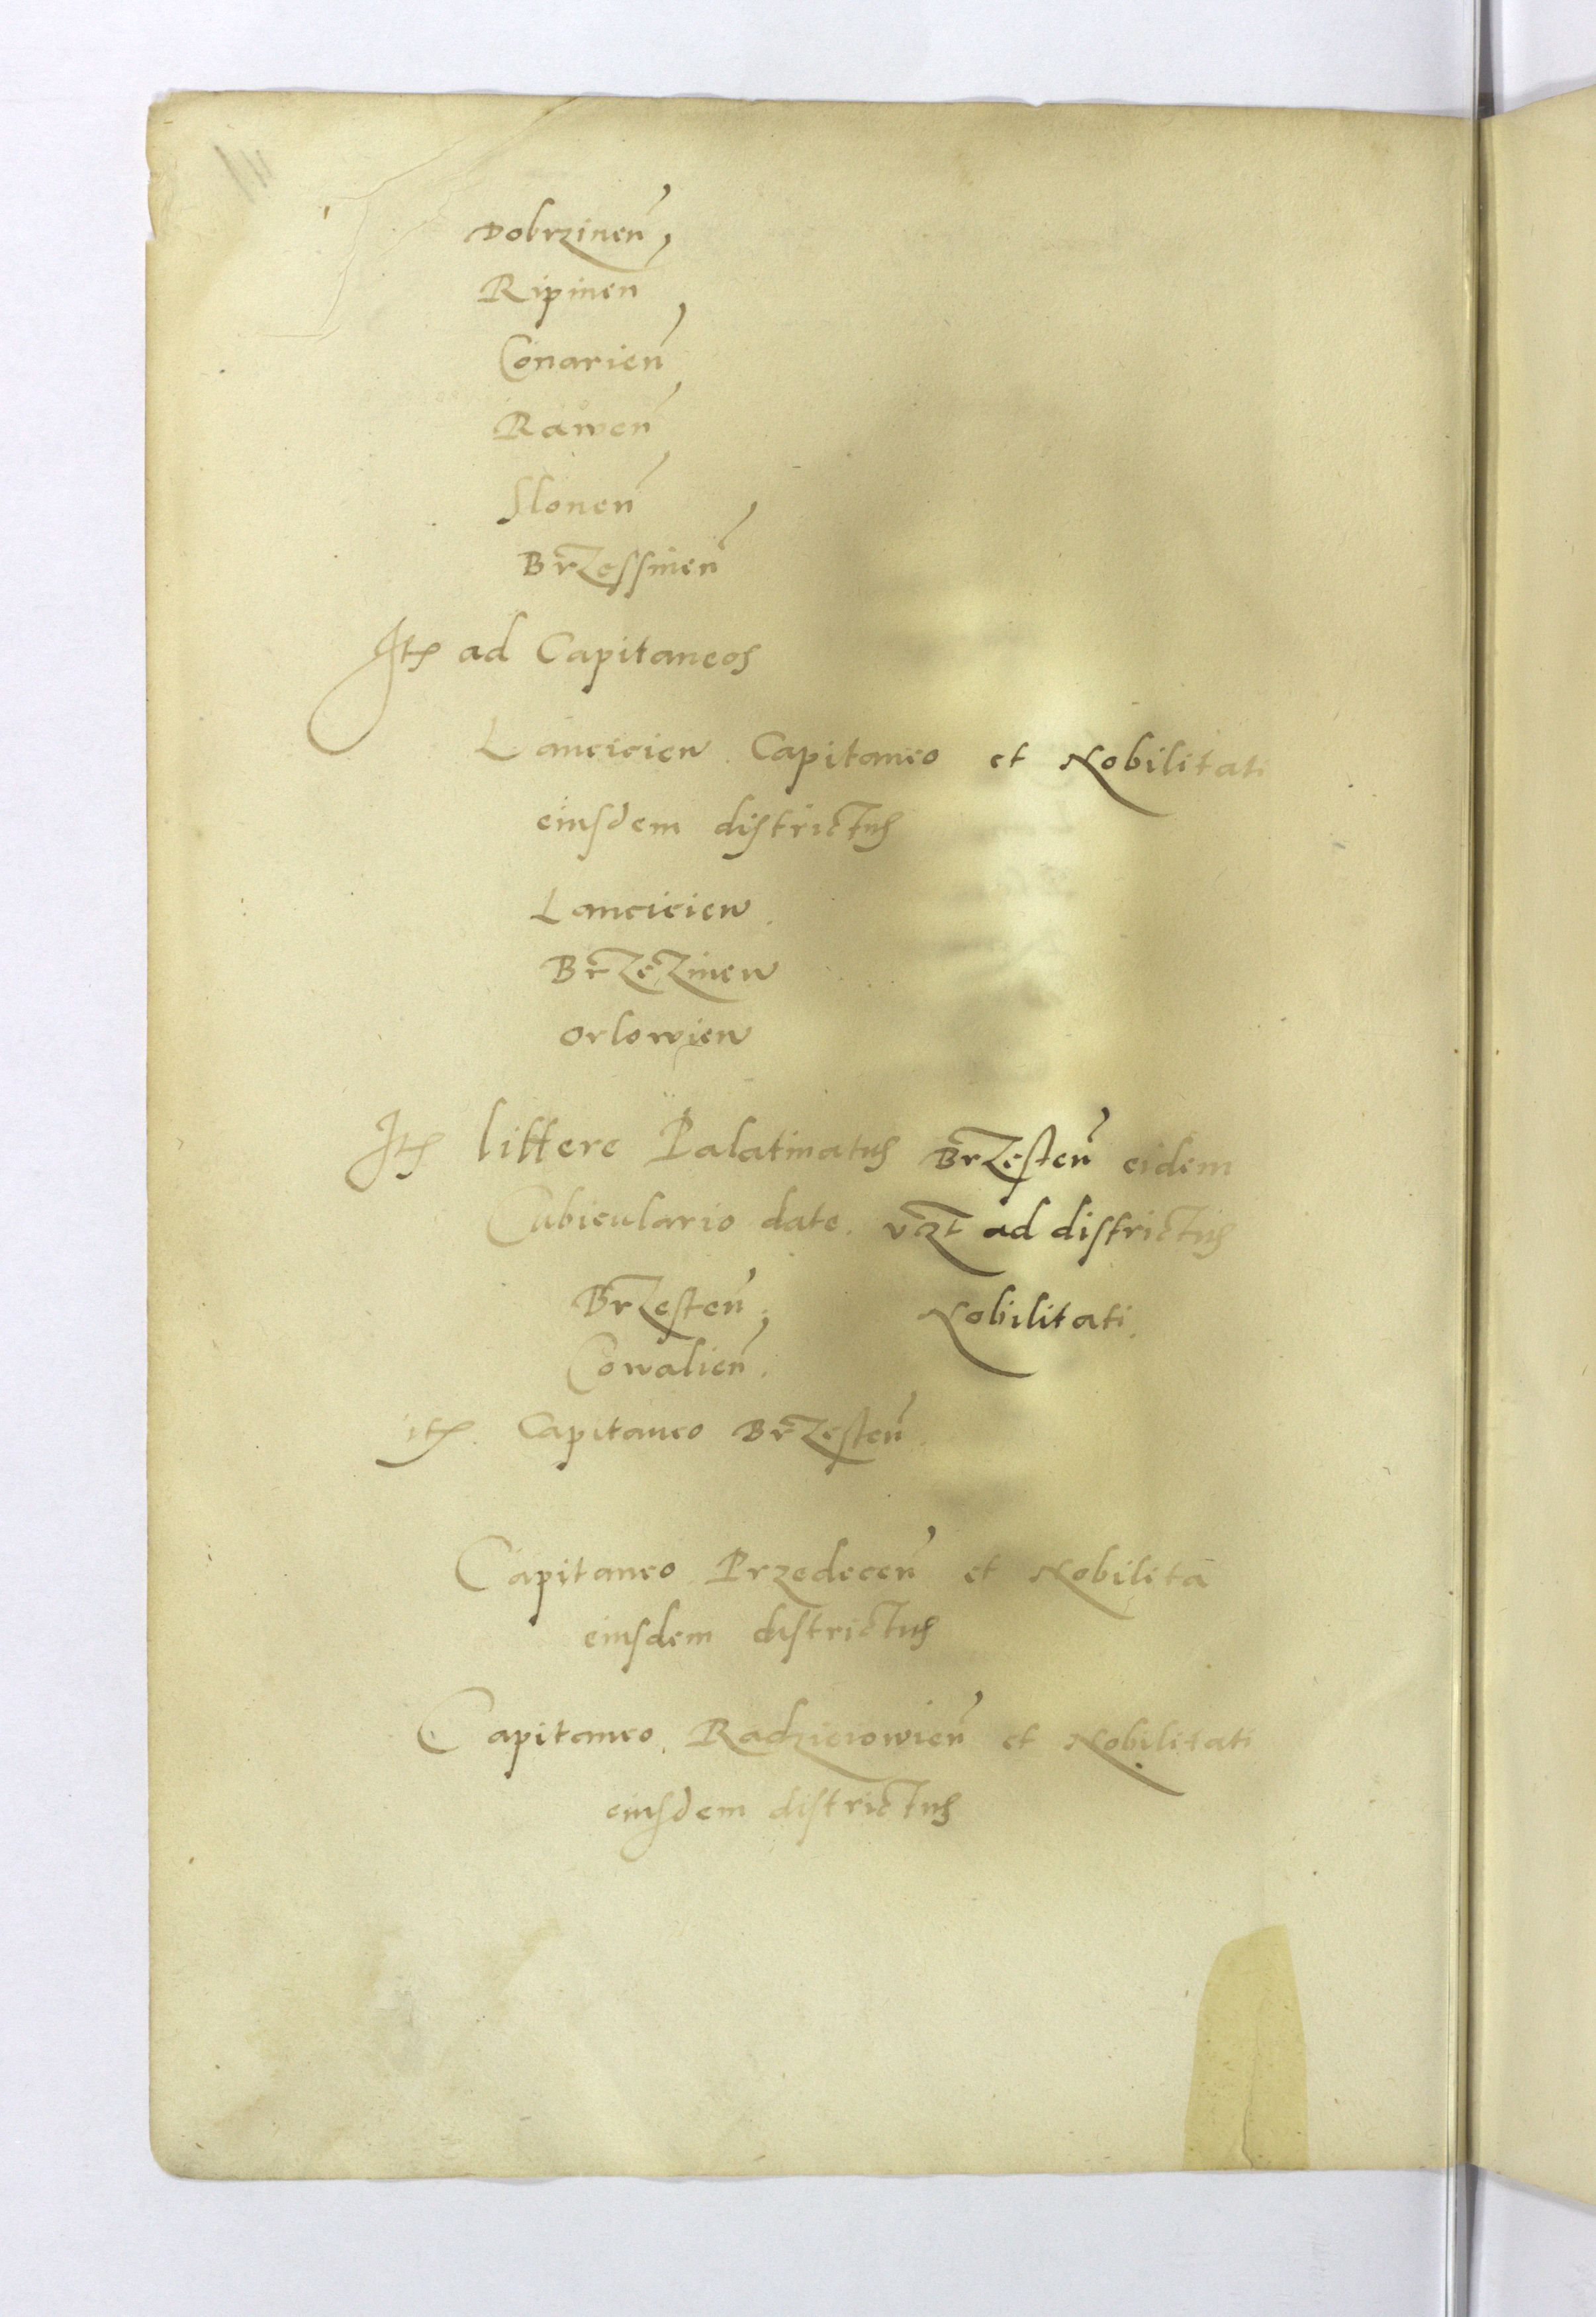 Dobrzinen
Ripinen
Conarien
Rawen
Slonen
Brzessinen
Itē ad Capitaneos
Lancicien Capitaneo et Nobilitati
eiusdem districtus
Lancicien
Brzezinen
Orlowien
Itē littere Palatinatus Brzesten eidem
Cubiculario date. vzt ad districtus
Brzesten, Nobilitati.
Cowalien.
itē. Capitaneo Brzesten.
Capitaneo Przedecen et Nobilita
eiusdem districtus
Capitaneo Radzieiowien et Nobilitati
eiusdem districtus